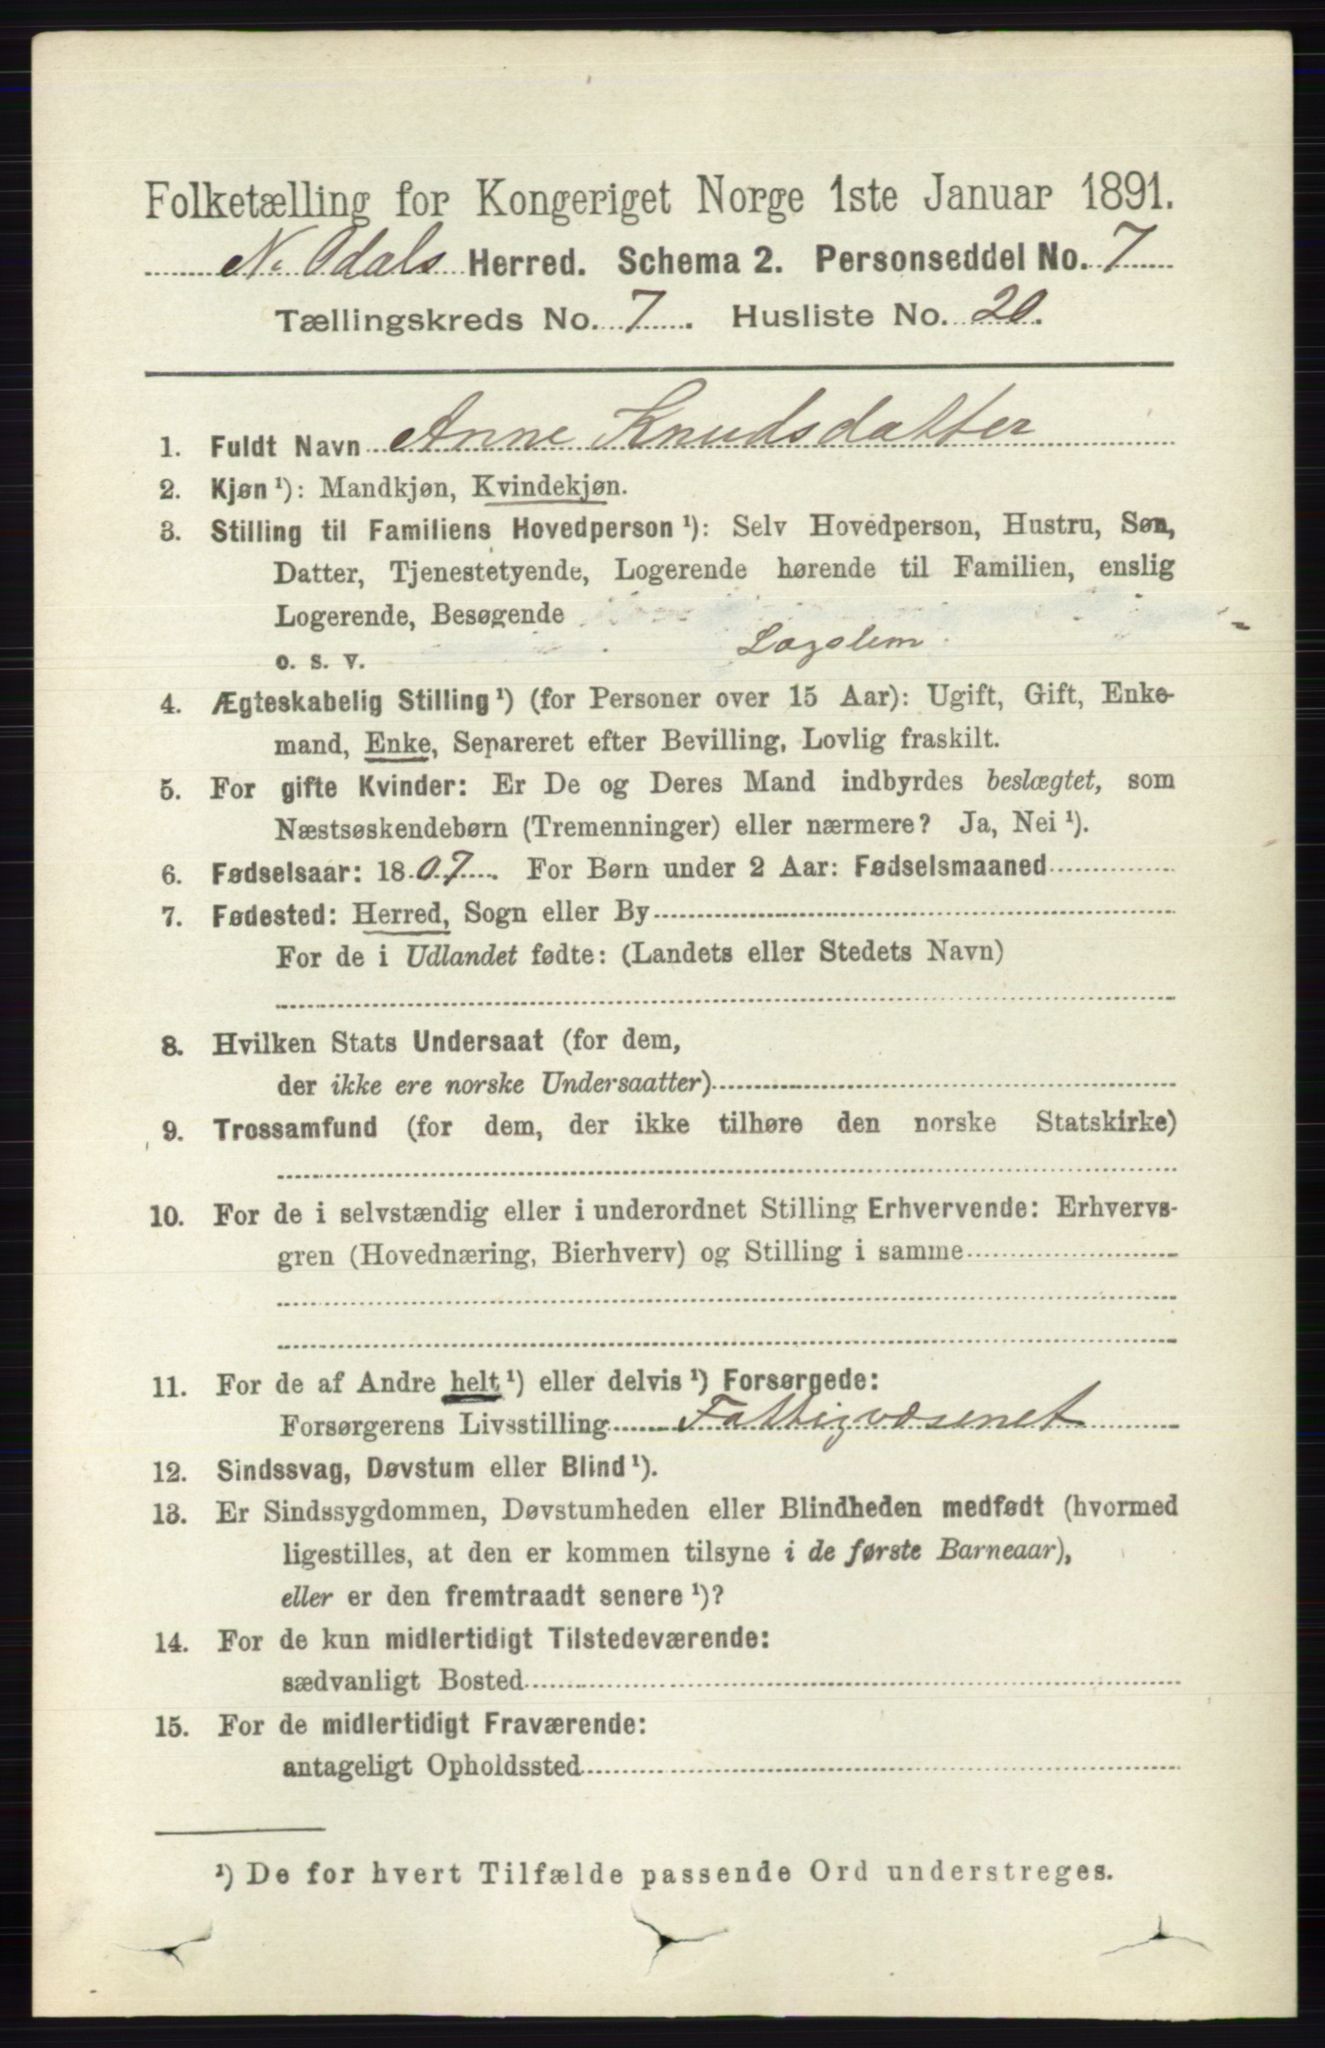 Folketælling for Kongeriget Norge 1ste Januar 1891.
N. Odals Herred. Schema 2. Personseddel No. 7
Tællingskreds No. 7. Husliste No. 20.
1. Fuldt Navn Anne Knudsdatter
2. Kjøn ¹): Mandkjøn, Kvindekjøn.
3. Stilling til Familiens Hovedperson ¹): Selv Hovedperson, Hustru, Søn,
Datter, Tjenestetyende, Logerende hørende til Familien, enslig
Logerende, Besøgende
o. s. v. Lægslem
4. Ægteskabelig Stilling ¹) (for Personer over 15 Aar): Ugift, Gift, Enke-
mand, Enke, Separeret efter Bevilling, Lovlig fraskilt.
5. For gifte Kvinder: Er De og Deres Mand indbyrdes beslægtet, som
Næstsøskendebørn (Tremenninger) eller nærmere? Ja, Nei ¹).
6. Fødselsaar: 1807. For Børn under 2 Aar: Fødselsmaaned
7. Fødested: Herred, Sogn eller By
For de i Udlandet fødte: (Landets eller Stedets Navn)
8. Hvilken Stats Undersaat (for dem,
der ikke ere norske Undersaatter)
9. Trossamfund (for dem, der ikke tilhøre den norske Statskirke)
10. For de i selvstændig eller i underordnet Stilling Erhvervende: Erhvervs-
gren (Hovednæring, Bierhverv) og Stilling i samme
11. For de af Andre helt ¹) eller delvis ¹) Forsørgede:
Forsørgerens Livsstilling Fattigvæsenet
12. Sindssvag, Døvstum eller Blind ¹).
13. Er Sindssygdommen, Døvstumheden eller Blindheden medfødt (hvormed
ligestilles, at den er kommen tilsyne i de første Barneaar),
eller er den fremtraadt senere ¹)?
14. For de kun midlertidigt Tilstedeværende:
sædvanligt Bosted
15. For de midlertidigt Fraværende:
antageligt Opholdssted
¹) De for hvert Tilfælde passende Ord understreges.